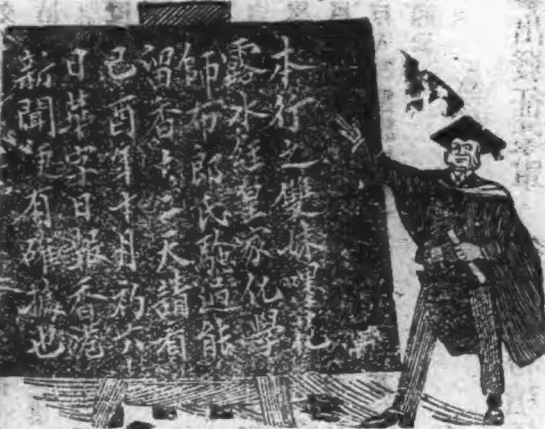 本行之雙妹嚜花
露水經皇家化學
師布郎氏驗過能
留香六二天請看
己酉年十月初六
日華字日報香港
新聞便有確據也